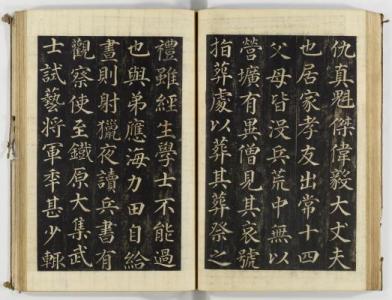 仇真魁傑偉毅大丈夫
也居家孝友出常十四
父母皆沒兵荒中無以
營壙有異僧見其哀號
指葬處以葬其葬祭之
禮雖經生學士不能過
也與弟應海力田自給
晝則射獵夜讀兵書有
觀察使至鐵原大集武
士試藝將軍年甚少輒